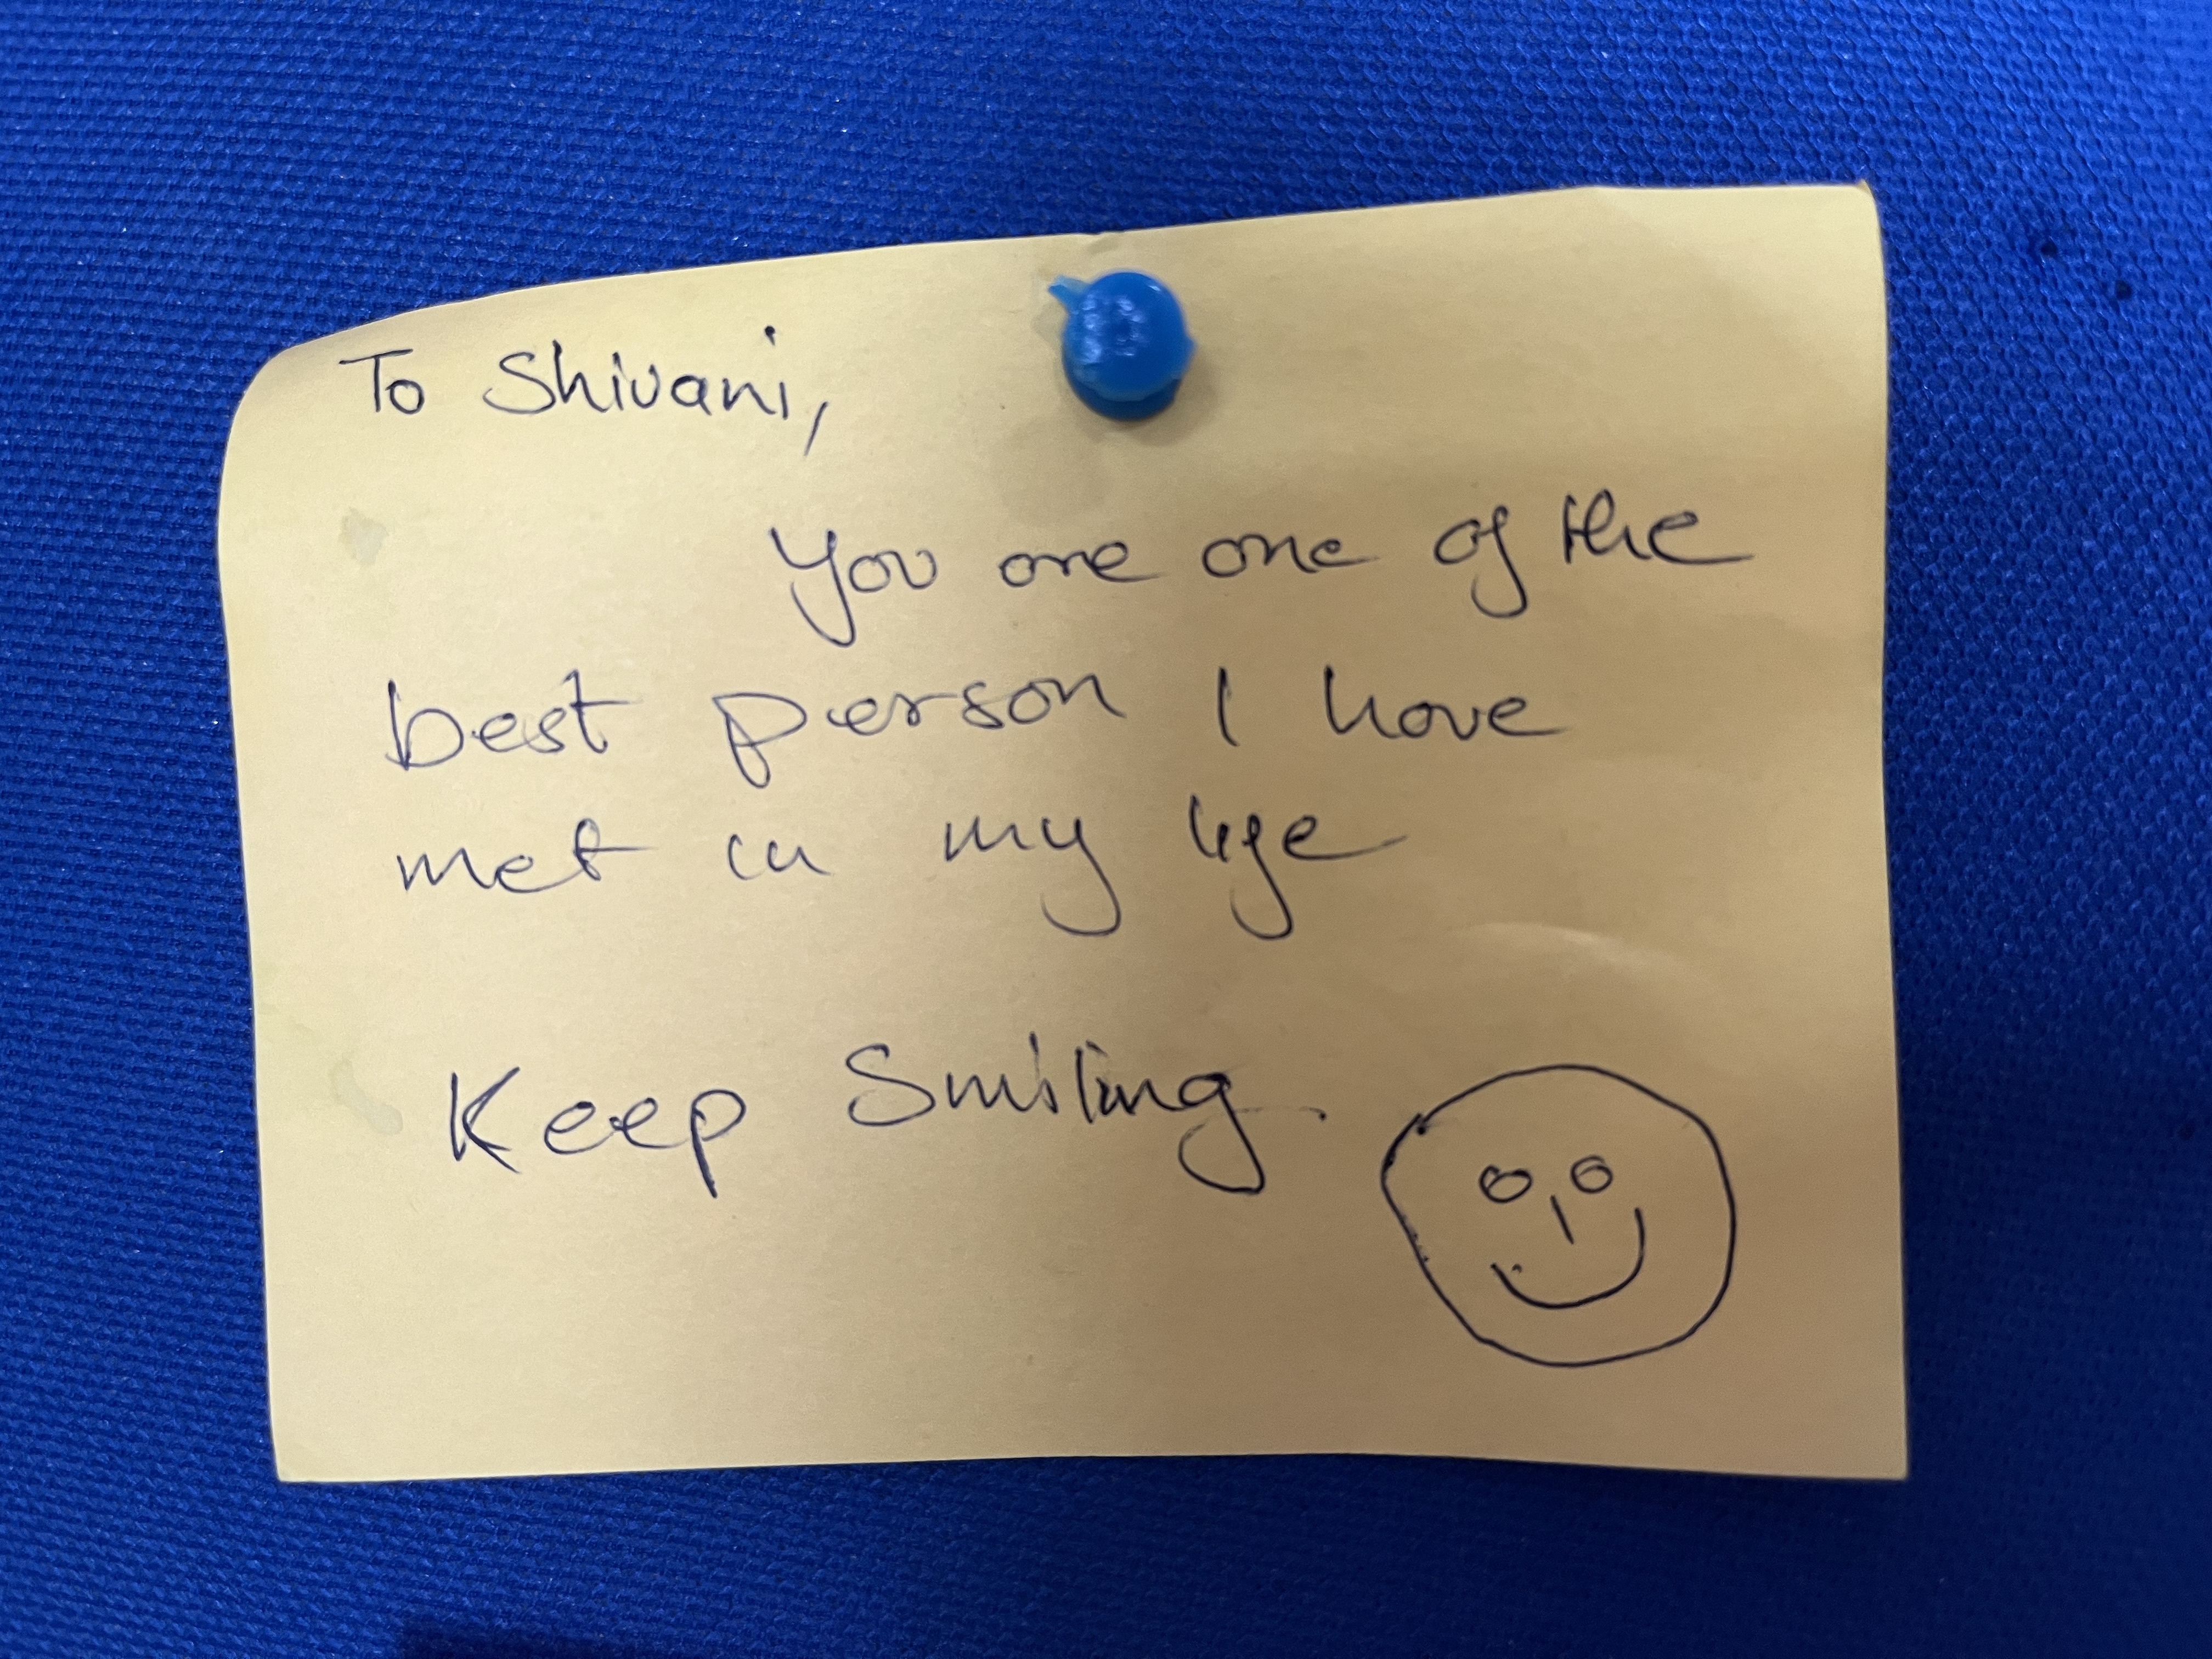 To Shivani,
You are one of the
best person I have
met in my life
Keep Smiling.